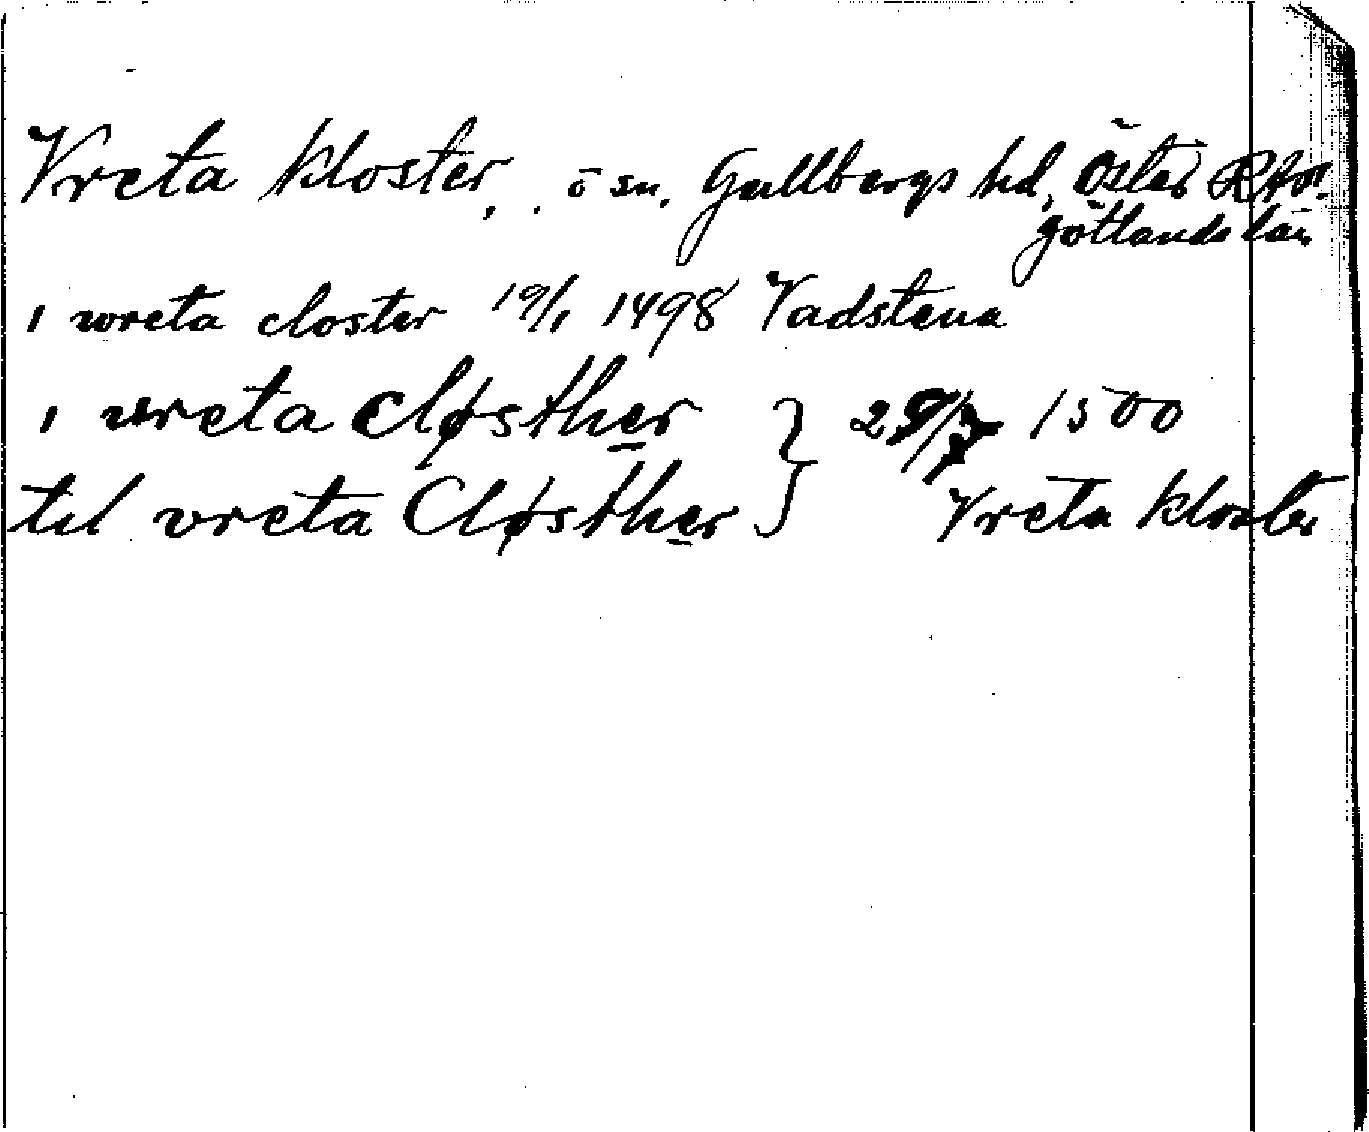 Vreta kloster, . ö sn. Gullbergs hd, Öster
götlands län
i wreta closter 19/1 1498 Vadstena
i vreta cløsther } 29/7 1500
til vreta Cløsther } Vreta kloster